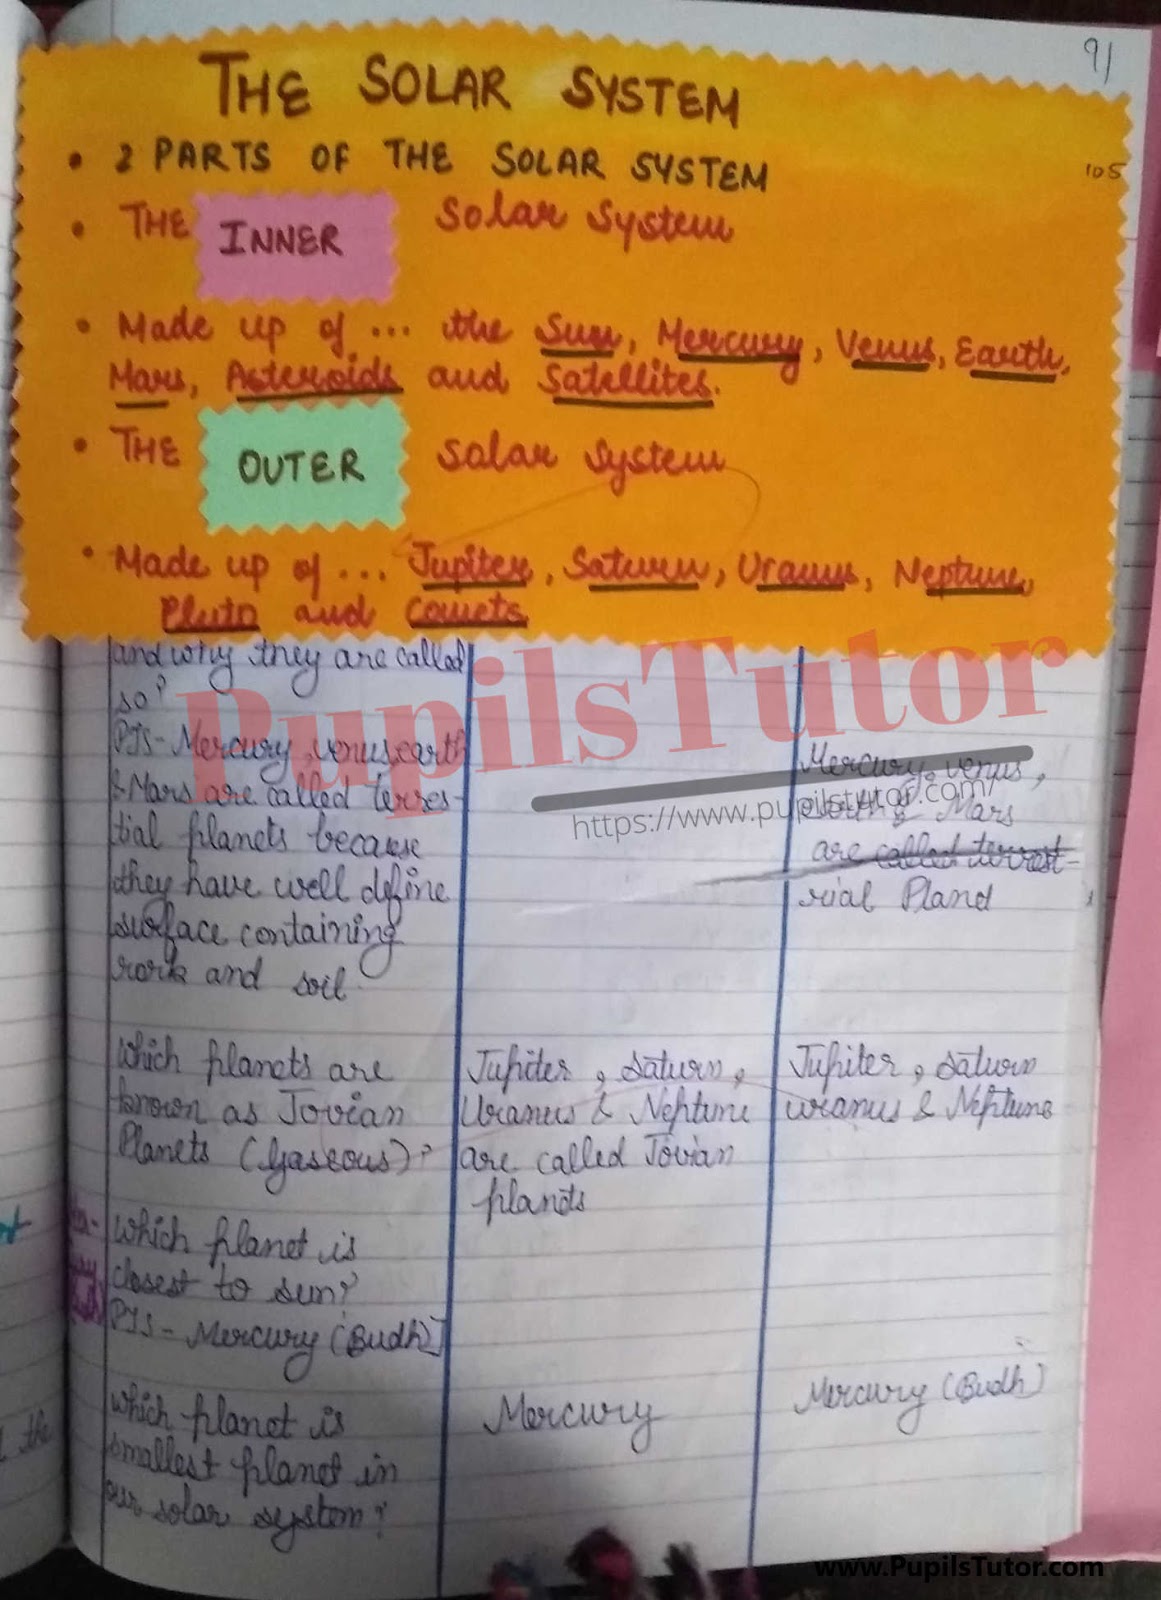 91
THE SOLAR SYSTEM
• 2 PARTS OF THE SOLAR SYSTEM
105
• THE INNER Solar System
• Made up of ... the Sun, Mercury, Venus, Earth,
Mars, Asteroids and Satellites.
• THE OUTER Solar System
• Made up of ... Jupiter, Saturn, Uranus, Neptune,
Pluto and Comets
and why they are called
so?
PTS- Mercury, venus, earth
& Mars are called terres-
tial planets because
they have well define
surface containing
rork and soil
Mercury, venus,
& Mars
are called terrest-
rial Planet
PupilsTutor
https://www.pupilstutor.com/
which planets are
known as Jovian
Planets (Gaseous)?
Jupiter, saturn,
Uranus & Neptune
are called Jovian
planets
Jupiter, saturn
uranus & Neptune
which planet is
closest to sun?
PTS- Mercury (Budh)
which planet is
smallest planet in
our solar system?
Mercury
Mercury (Budh)
the
www.PupilsTutor.com